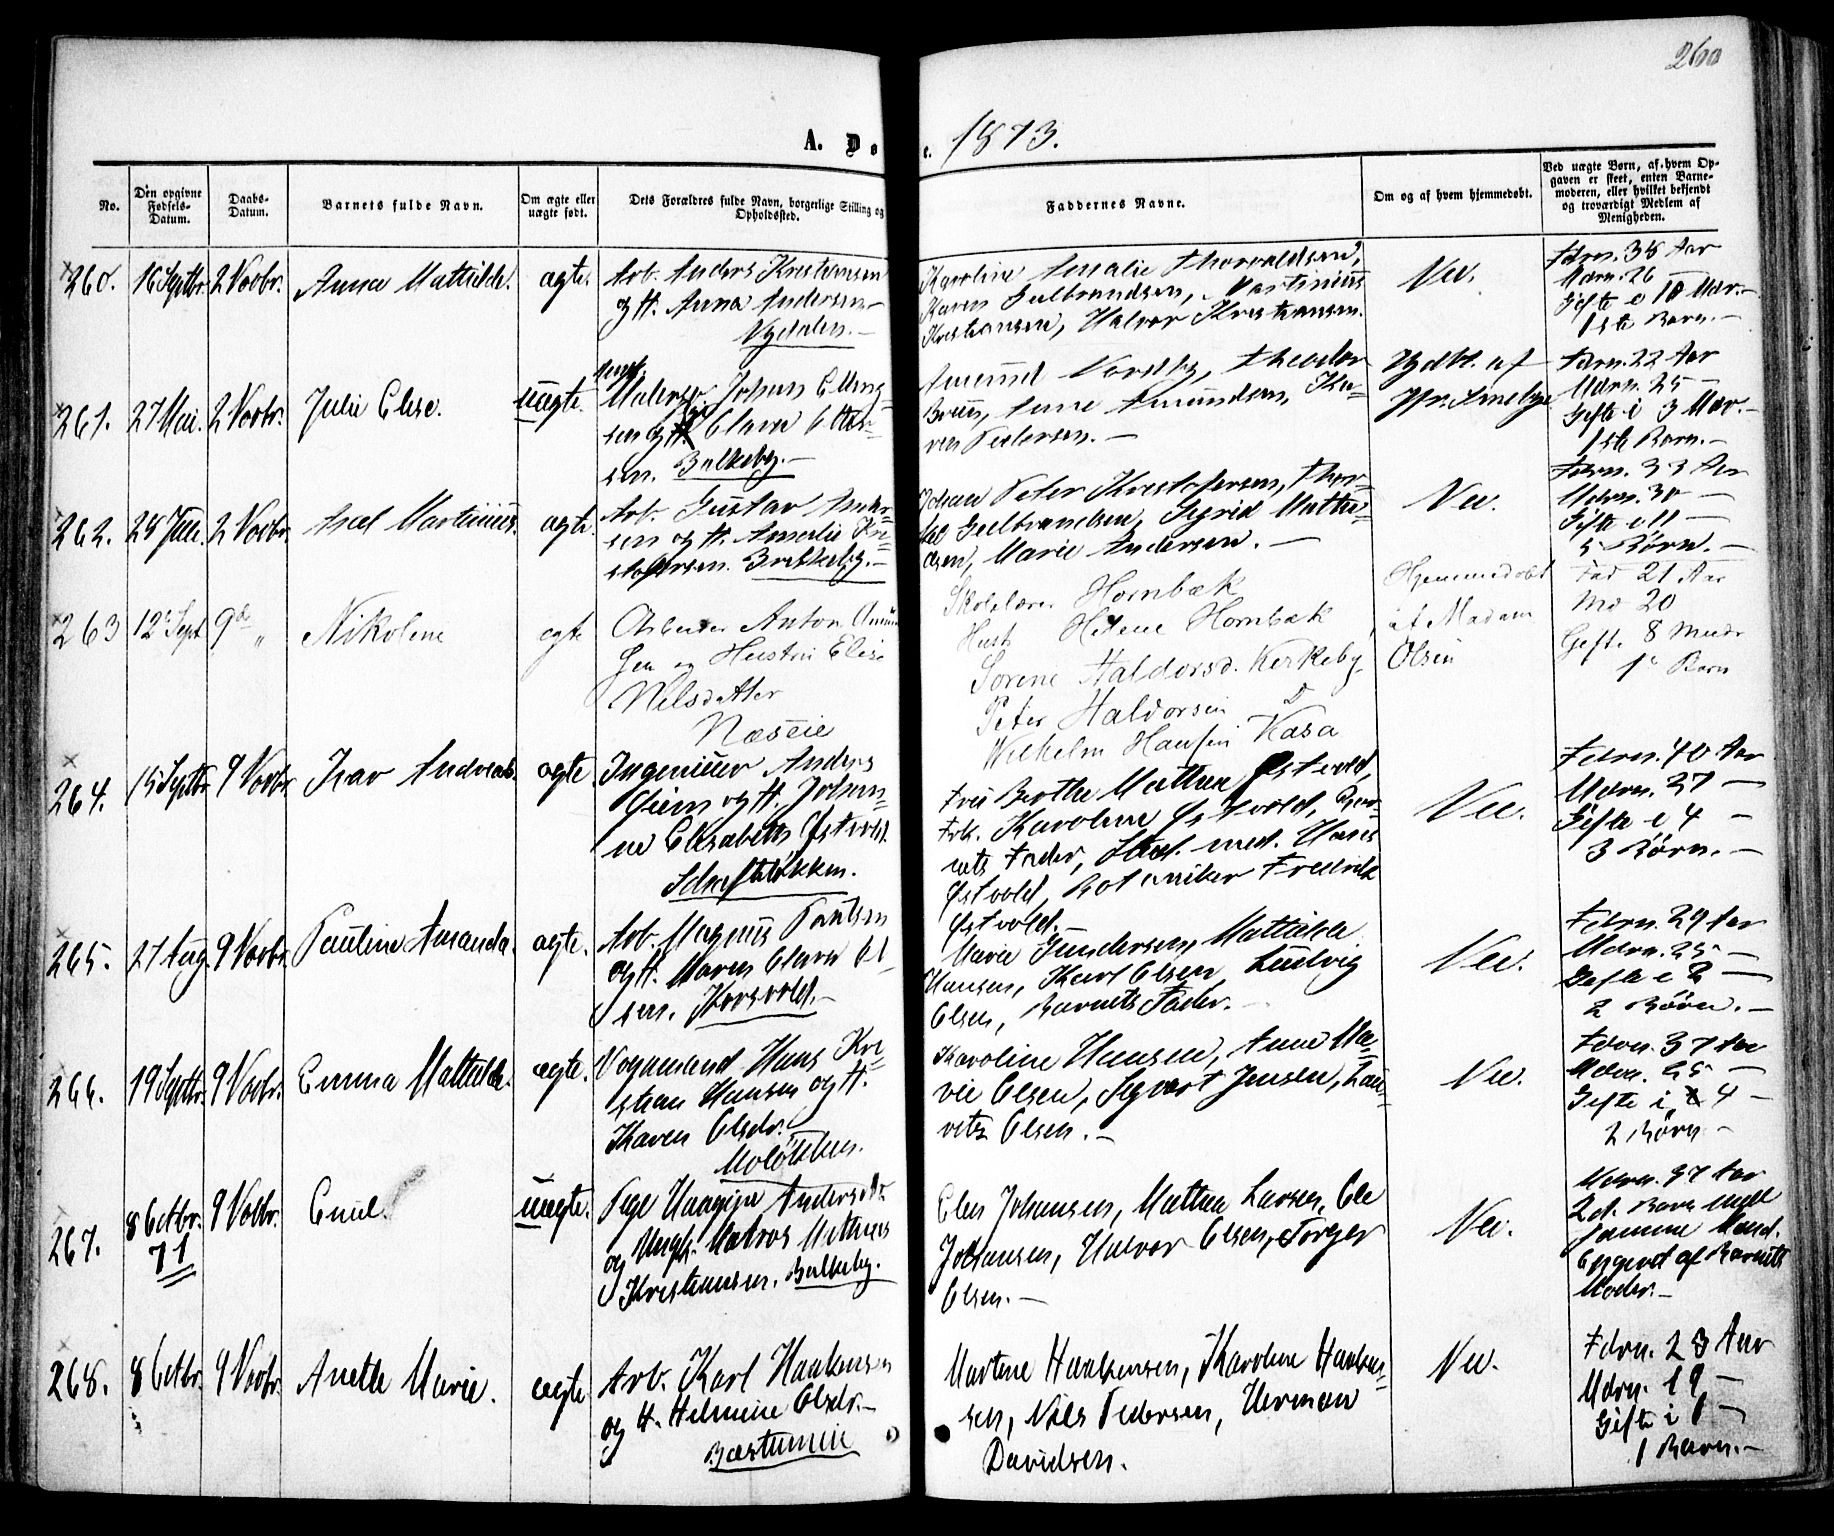 260
A. Døbte. 1873.
No.
Den opgivne Fødsels-Datum.
Daabs-Datum.
Barnets fulde Navn.
Om ægte eller uægte født.
Dets Forældres fulde Navn, borgerlige Stilling og Opholdssted.
Faddernes Navne.
Om og af hvem hjemmedøbt.
Ved uægte Børn, af hvem Opgaven er skeet, enten Barnemoderen, eller hvilket bekjendt og troværdigt Medlem af Menigheden.
260. 16 Septbr. 2 Novbr. Anna Mathilde. ægte.
Arb. Anders Kristiansen
og H. Anna Andersen
Nydalen.
Karoline Amalie Thorvaldsen,
Karen Gulbrandsen, Martinius
Kristiansen, Halvor Kristiansen.
Nei.
Fdrn. 38 Aar
Mdrn. 26
Gifte i 10 Mdr.
1ste Barn.
261. 27 Mai. 2 Novbr. Julie Elise. uægte.
Malersv. Johan Elling-
sen og Clara Otter-
sen. Balkeby.
Amund Nordby, Theodor
Bruun, Anne Amundsen, Ka-
ren Pedersen.
Hjdbt. af
Jfr. Smebye
Fdrn. 22 Aar
Mdrn. 25
Gifte i 3 Mdr.
1ste Barn.
262. 28 Juli. 2 Novbr. Axel Martinius. ægte.
Arb. Gustav Ander-
sen og H. Amalie Kri-
stofersen. Briskeby.
Johan Peter Kristofersen, Thor-
Gulbrandsen, Sigrid Mathi-
esen, Marie Andersen.
Nei.
Fdrn. 33 Aar
Mdrn. 30
Gifte i 11
5 Børn.
263 12 Sept 9de " Nikoline egte
Arbeider Anton Amun
sen og Hustru Elise
Nilsdatter
Næseie
Skolelærer Hornbæk
Hust Helene Hornbæk
Sorene Haldorsd. Kirkeby
Peter Haldorsen
Wilhelm Hansen Kasa
Hjemmedøbt
af Madam
Olsen
Fad 21 Aar
Mo 20
Gift. 8 Mndr
1e Barn
264. 15 Septbr. 9 Novbr. Ivar Andreas. ægte.
Ingeniuer Anders
og H. Johan-
ne Elisabeth Østvold.
Fru Berthe Mathea Østvold,
Frk. Karoline Østvold, Bar-
nets Fader, Stud. med. Hans
Østvold, Botaniker Fredrik
Østvold.
Nei.
Fdrn. 40 Aar
Mdrn. 37
Gifte i 4
3 Børn.
265. 27 Aug. 9 Novbr. Pauline Amanda. ægte.
Arb. Magnus Paulsen
og H. Maren Clara Ol-
sen. Korsvold.
Marie Gundersen, Mathilde
Hansen, Karl Olsen, Ludvig
Olsen, Barnets Fader.
Nei.
Fdrn. 29 Aar
Mdrn. 25
Gifte i 2
2 Børn.
266. 19 Septbr. 9 Novbr. Emma Mathilde. ægte.
Vognmand Hans Kri-
stian Hansen og H.
Karen Olsdr.
Moløkken.
Karoline Hansen, Anne Ma-
rie Olsen, Sigvart Jensen, Lau-
ritz Olsen.
Nei.
Fdrn. 37 Aar
Mdrn. 25
Gifte i 4
2 Børn
267. 8 Octbr. 71 9 Novbr. Emil. uægte.
Pige Andersdtr.
og Ungk. Matros Mathias
Kristiansen. Balkeby.
Elen Johansen, Mathea Larsen, Ole
Johansen, Halvor Olsen, Torger
Olsen.
Nei.
Mdrn. 37 Aar
2d. Barn med
samme Mand.
Opgivet af Barnets
Moder.
268. 8 Octbr. 9 Novbr. Anette Marie. ægte
Arb. Karl Haakensen
og H. Helmine Olsdr.
Bæstumeie
Martine Haakensen, Karoline Haaken-
sen, Nils Pedersen, Herman
Davidsen.
Nei.
Fdrn. 23 Aar
Mdrn. 19
Gifte i 1
1 Barn.